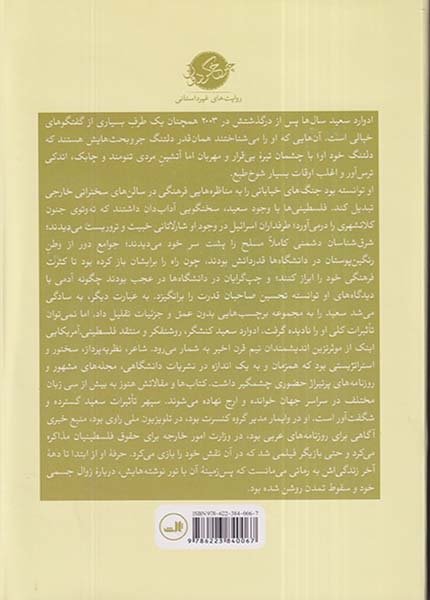 روایت‌های غیرداستانی
ادوارد سعید سال‌ها پس از درگذشتش در ۲۰۰۳ همچنان یک طرف بسیاری از گفتگوهای
خیالی است. آن‌هایی که او را می‌شناختند همان‌قدر دلتنگ جروبحث‌هایش هستند که
دلتنگ خود او؛ با چشمان تیرهٔ بی‌قرار و مهربان اما آتشین مردی تنومند و چابک، اندکی
ترس‌آور و اغلب اوقات بسیار شوخ‌طبع.
او توانسته بود جنگ‌های خیابانی را به مناظره‌هایی فرهنگی در سالن‌های سخنرانی خارجی
تبدیل کند. فلسطینی‌ها با وجود سعید، سخنگویی آداب‌دان داشتند که ته‌وتوی جنون
کلانشهری را درمی‌آورد؛ طرفداران اسرائیل در وجود او شارلاتانی خبیث و تروریست می‌دیدند؛
شرق‌شناسان دشمنی کاملاً مسلح را پشت سر خود می‌دیدند؛ جوامع دور از وطن
رنگین‌پوستان در دانشگاه‌ها قدردانش بودند، چون راه را برایشان باز کرده بود تا کثرت
فرهنگی خود را ابراز کنند؛ و چپ‌گرایان در دانشگاه‌ها در عجب بودند چگونه آدمی با
دیدگاه‌های او توانسته تحسین صاحبان قدرت را برانگیزد. به عبارت دیگر، به سادگی
می‌شد سعید را به مجموعه برچسب‌هایی بدون عمق و جزئیات تقلیل داد. اما نمی‌توان
تأثیرات کلی او را نادیده گرفت. ادوارد سعید کنشگر، روشنفکر و منتقد فلسطینی‌ـ‌آمریکایی
اینک از موثرترین اندیشمندان نیم قرن اخیر به شمار می‌رود. شاعر، نظریه‌پرداز، سخنور و
استراتژیستی بود که همزمان و به یک اندازه در نشریات دانشگاهی، مجله‌های مشهور و
روزنامه‌های پرتیراژ حضوری چشمگیر داشت. کتاب‌ها و مقالاتش هنوز به بیش از سی زبان
مختلف در سراسر جهان خوانده و ارج نهاده می‌شوند. سپهر تأثیرات سعید گسترده و
شگفت‌آور است. او در وایمار مدیر گروه کنسرت بود، در تلویزیون ملی راوی بود، منبع خبری
آگاهی برای روزنامه‌های غربی بود، در وزارت امور خارجه برای حقوق فلسطینیان مذاکره
می‌کرد و حتی بازیگر فیلمی شد که در آن نقش خود را بازی می‌کرد. حرفهٔ او از ابتدا تا دههٔ
آخر زندگی‌اش به رمانی می‌مانست که پس‌زمینهٔ آن با نور نوشته‌هایش، دربارهٔ زوال جسمی
خود و سقوط تمدن روشن شده بود.
ISBN 978-622-384-006-7
9 786223 840067
ثالث